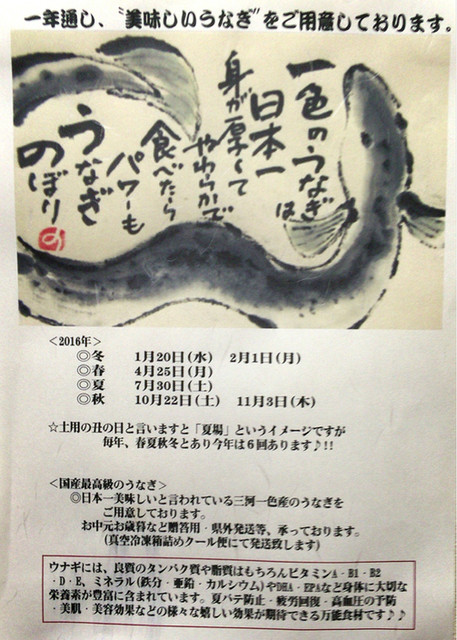 一年通し、“美味しいうなぎ”をご用意しております。
一色のうなぎは
日本一
身が厚くて
やわらかで
食べたら
パワーも
うなぎ
のぼり
の
<2016年>
◎冬 1月20日(水) 2月1日(月)
◎春 4月25日(月)
◎夏 7月30日(土)
◎秋 10月22日(土) 11月3日(木)
☆土用の丑の日と言いますと「夏場」というイメージですが
毎年、春夏秋冬とあり今年は6回あります♪!!
<国産最高級のうなぎ>
◎日本一美味しいと言われている三河一色産のうなぎを
ご用意しております。
お中元お歳暮など贈答用・県外発送等、承っております。
(真空冷凍箱詰めクール便にて発送致します)
ウナギには、良質のタンパク質や脂質はもちろんビタミンA・B1・B2
・D・E、ミネラル(鉄分・亜鉛・カルシウム)やDHA・EPAなど身体に大切な
栄養素が豊富に含まれています。夏バテ防止・疲労回復・高血圧の予防
・美肌・美容効果などの様々な嬉しい効果が期待できる万能食材です♪♪